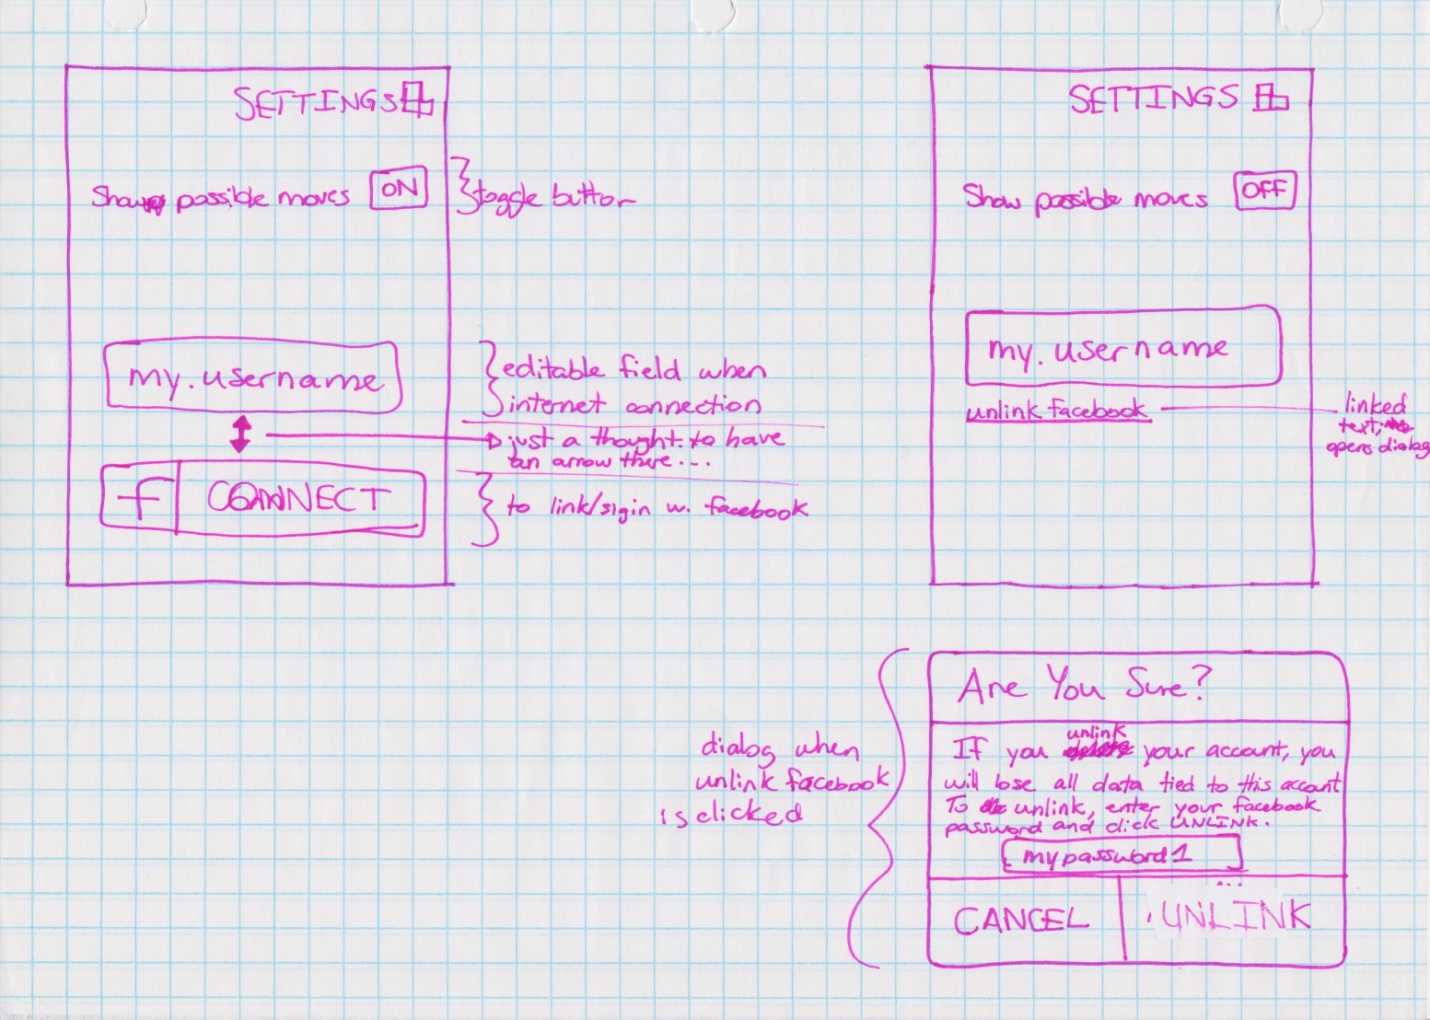 SETTINGS
Show possible moves ON
toggle button
my.username
editable field when
internet connection
just a thought to have
an arrow there...
f CONNECT
to link/sigin w. facebook
SETTINGS
Show possible moves OFF
my.username
unlink facebook
linked
text;
opens dialog
dialog when
unlink facebook
is clicked
Are You Sure?
unlink
If you delete your account, you
will lose all data tied to this account
To unlink, enter your facebook
password and click UNLINK.
mypassword1
CANCEL
UNLINK